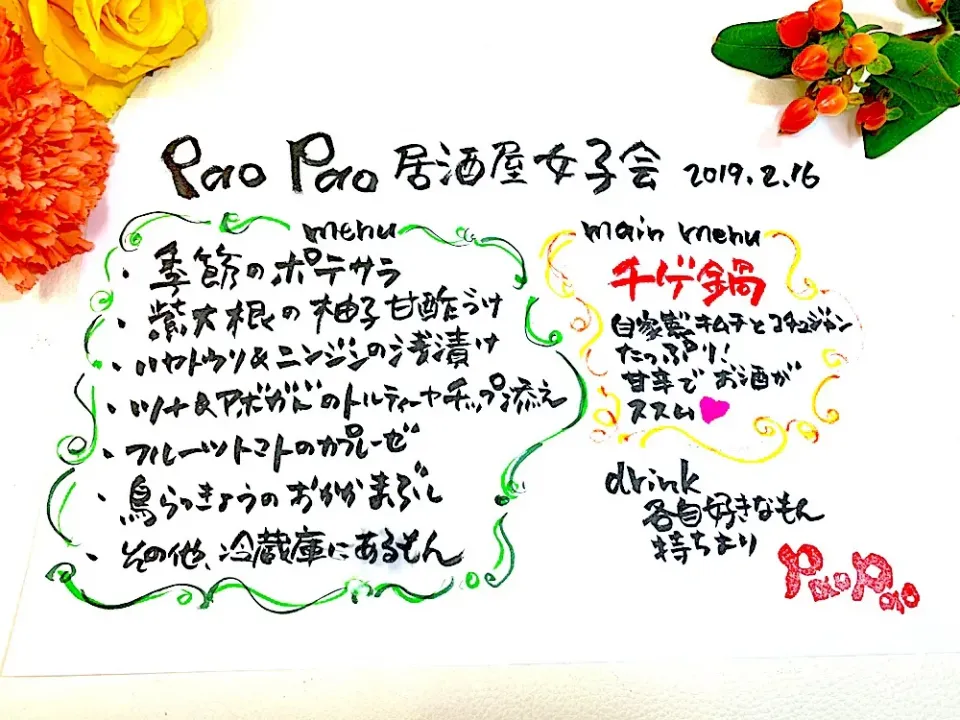 Pao Pao 居酒屋女子会 2019.2.16
menu
・季節のポテサラ
・紫大根の柚子甘酢づけ
・ハヤトウリ&ニンジンの浅漬け
・ツナ&アボガドのトルティーヤチップ添え
・フルーツトマトのカプレーゼ
・島らっきょうのおかかまぶし
・その他、冷蔵庫にあるもん
main menu
チゲ鍋
自家製キムチとコチュジャン
たっぷり!
甘辛でお酒が
ススム
drink
各自好きなもん
持ちより
PaoPao